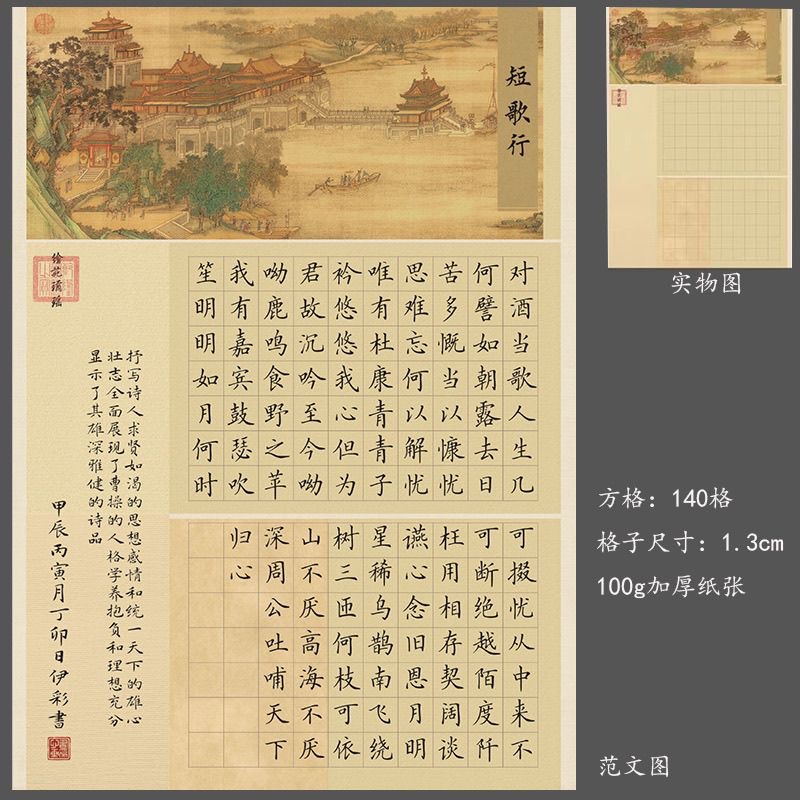 短歌行
对酒当歌人生几
何譬如朝露去日
苦多慨当以慷忧
思难忘何以解忧
唯有杜康青青子
衿悠悠我心但为
君故沉吟至今呦
呦鹿鸣食野之苹
我有嘉宾鼓瑟吹
笙明明如月何时
可掇忧从中来不
可断绝越陌度阡
枉用相存契阔谈
䜩心念旧恩月明
星稀乌鹊南飞绕
树三匝何枝可依
山不厌高海不厌
深周公吐哺天下
归心
抒写诗人求贤如渴的思想感情和统一天下的雄心
壮志全面展现了曹操的人格学养抱负和理想充分
显示了其雄深雅健的诗品
甲辰丙寅月丁卯日伊彩書
实物图
方格：140格
格子尺寸：1.3cm
100g加厚纸张
范文图